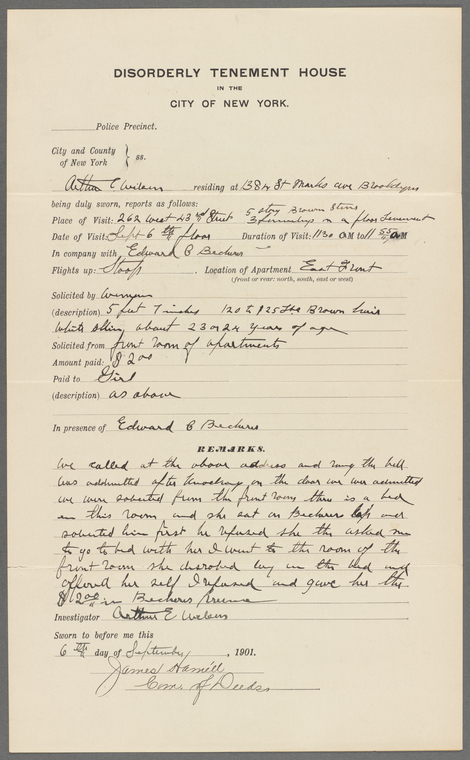 DISORDERLY TENEMENT HOUSE
IN THE
CITY OF NEW YORK.
Police Precinct.
City and County
of New York } ss.
Arthur E Wilson residing at 1384 St Marks ave Brooklyn
being duly sworn, reports as follows:
Place of Visit: 262 West 43rd Street 5 story Brown Stone
3 families on a floor Tenement
Date of Visit: Sept 6th floor Duration of Visit: 11 30 AM to 11 55 AM
In company with Edward C Becherer
Flights up: Stoop Location of Apartment East Front
(front or rear: north, south, east or west)
Solicited by woman
(description) 5 feet 7 inches 120 to 125 lbs Brown hair
white skin about 23 or 24 years of age
Solicited from front room of apartments
Amount paid: $2 00
Paid to Girl
(description) as above
In presence of Edward C Becherer
REMARKS.
We called at the above address and rung the bell
was addmitted after Knocking on the door we was admitted
we were solicited from the front room there is a bed
in this room and she sat on Becherers lap and
solicited him first he refused she the asked me
to go to bed with her I went to the room of the
front room she lay on the bed and
offered her self I refused and gave her the
$2 00 in Becherers
Investigator Arthur E Wilson
Sworn to before me this
6th day of September, 1901.
James Hamill
Com. of Deeds